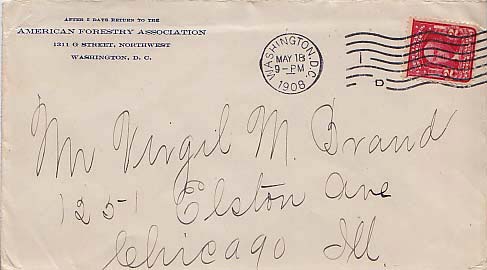 AFTER 5 DAYS RETURN TO THE
AMERICAN FORESTRY ASSOCIATION
1311 G STREET, NORTHWEST
WASHINGTON, D. C.
WASHINGTON, D.C.
MAY 18
9-PM
1908
D
Mr Virgil M. Brand
1251 Elston Ave
Chicago Ill.